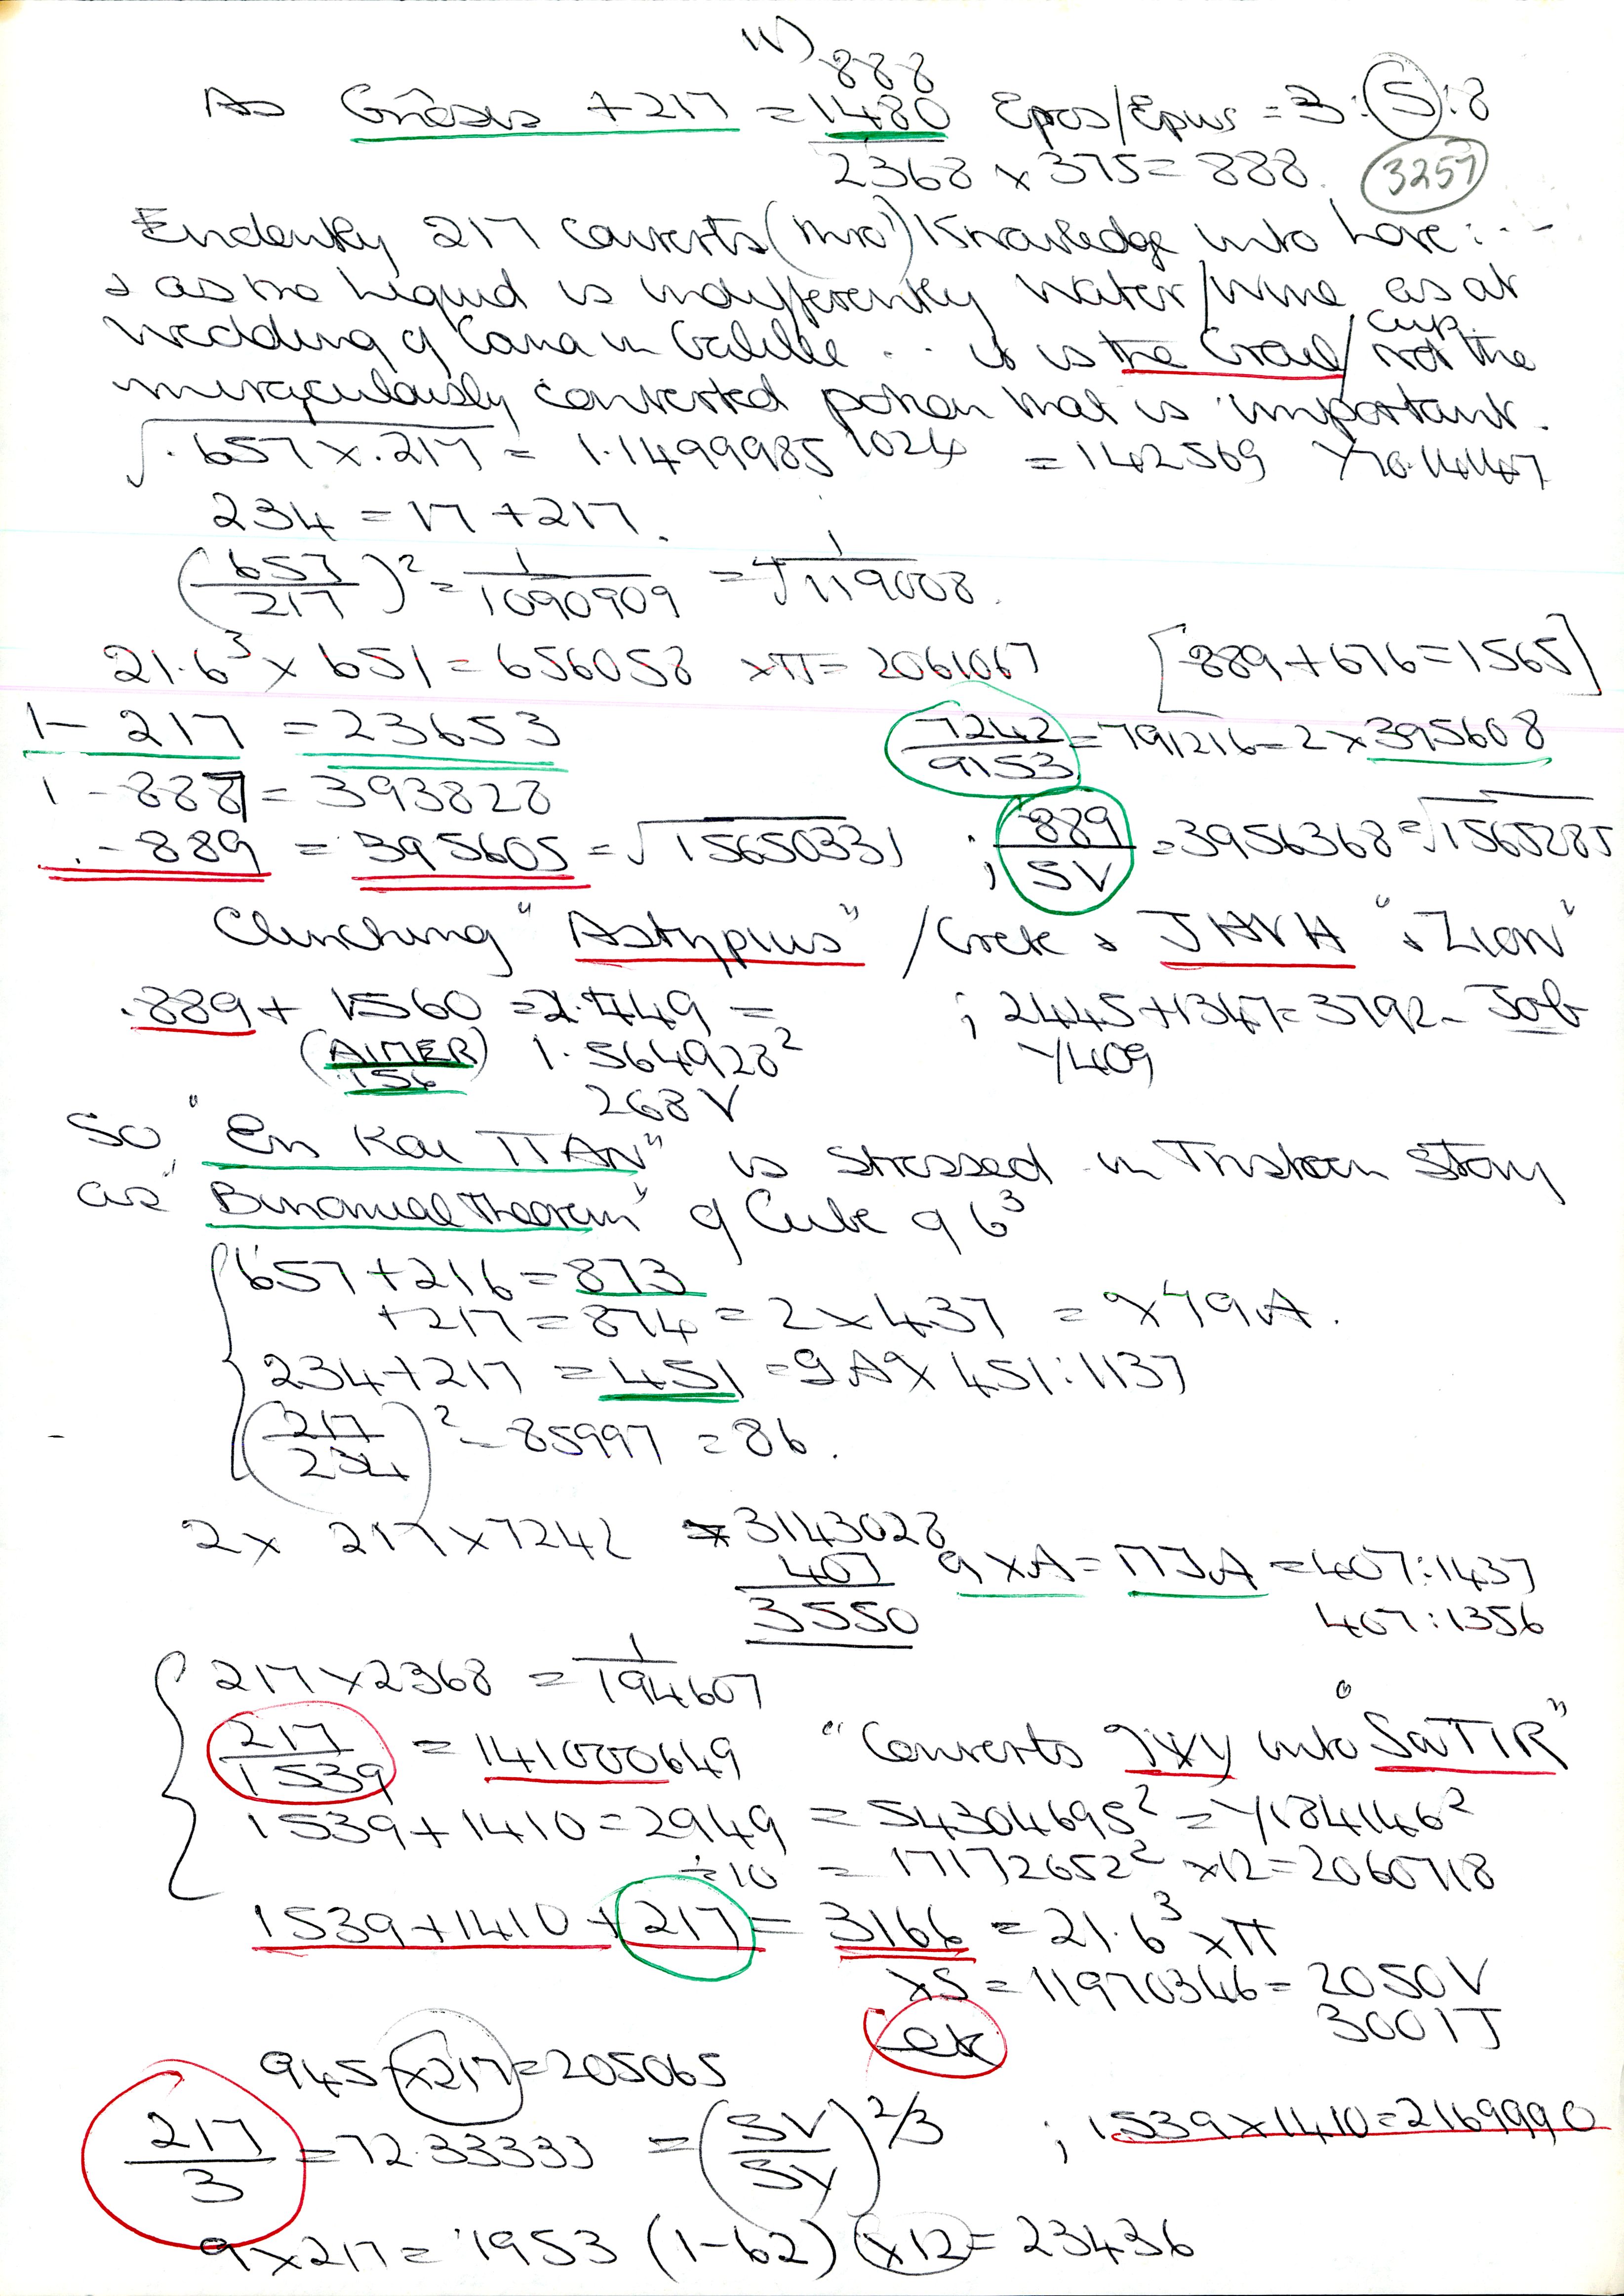 IV)
888
As Gnosis + 217 = 1480 Epos/Epius = 3 : 5 : 8
2368 × 375 = 888. 3257
Evidently 217 converts (thro') Knowledge into Love : . . -
& as the Liquid is indifferently Water/Wine as at
Wedding of Cana in Galilee . . it is the Grail/cup. not the
miraculously converted potion that is important.
√.657 × .217 = 1.1499985 1024 = 142569 
234 = 17 + 217.
(657/217)² = 1/1090909 = 4√1/119008.
21.6³ × 651 = 656058 × π = 2061067 [889 + 676 = 1565]
1 – 217 = 23653 7242/9153 = 791216 = 2 × 395608
1 – 887 = 393828
. – 889 = 395605 = √15650331 ; 889/SV = 3956368 = √1565285
Clinching "Astypius" / Crete & JHVH "& Zion"
.889 + 1560 = 2.449 = ; 2445 + 1347 = 3792 – Job
(AIMER) 1.564928² Y409
156 268V
So "En Kai ΠAN" is stressed in Tristan Story
as "Binomial Theorem" of Cube of 6³
657 + 216 = 873
+ 217 = 874 = 2 × 437 = 9×79A.
234 + 217 = 451 = 451 : 1137
(217/234)² = 85997 = 86.
2 × 217 × 7242 = 3143028
407 9×A = ΠJA = 407 : 1437
3550 407 : 1356
217 × 2368 = 1/194607
217/1539 = 141000649 "Converts into "SaTTR"
1539 + 1410 = 2949 = 54304695² = Y184146²
÷ 10 = 171172652² × 12 = 2060718
1539 + 1410 + 217 = 3166 = 21.6³ × π
×5 = 11970346 = 2050V
ek 3001J
945 × 217 = 205065
217/3 = 72.33333 = (SV/SY)2/3 ; 1539 × 1410 = 2169990
9 × 217 = 1953 (1–62) × 12 = 23436